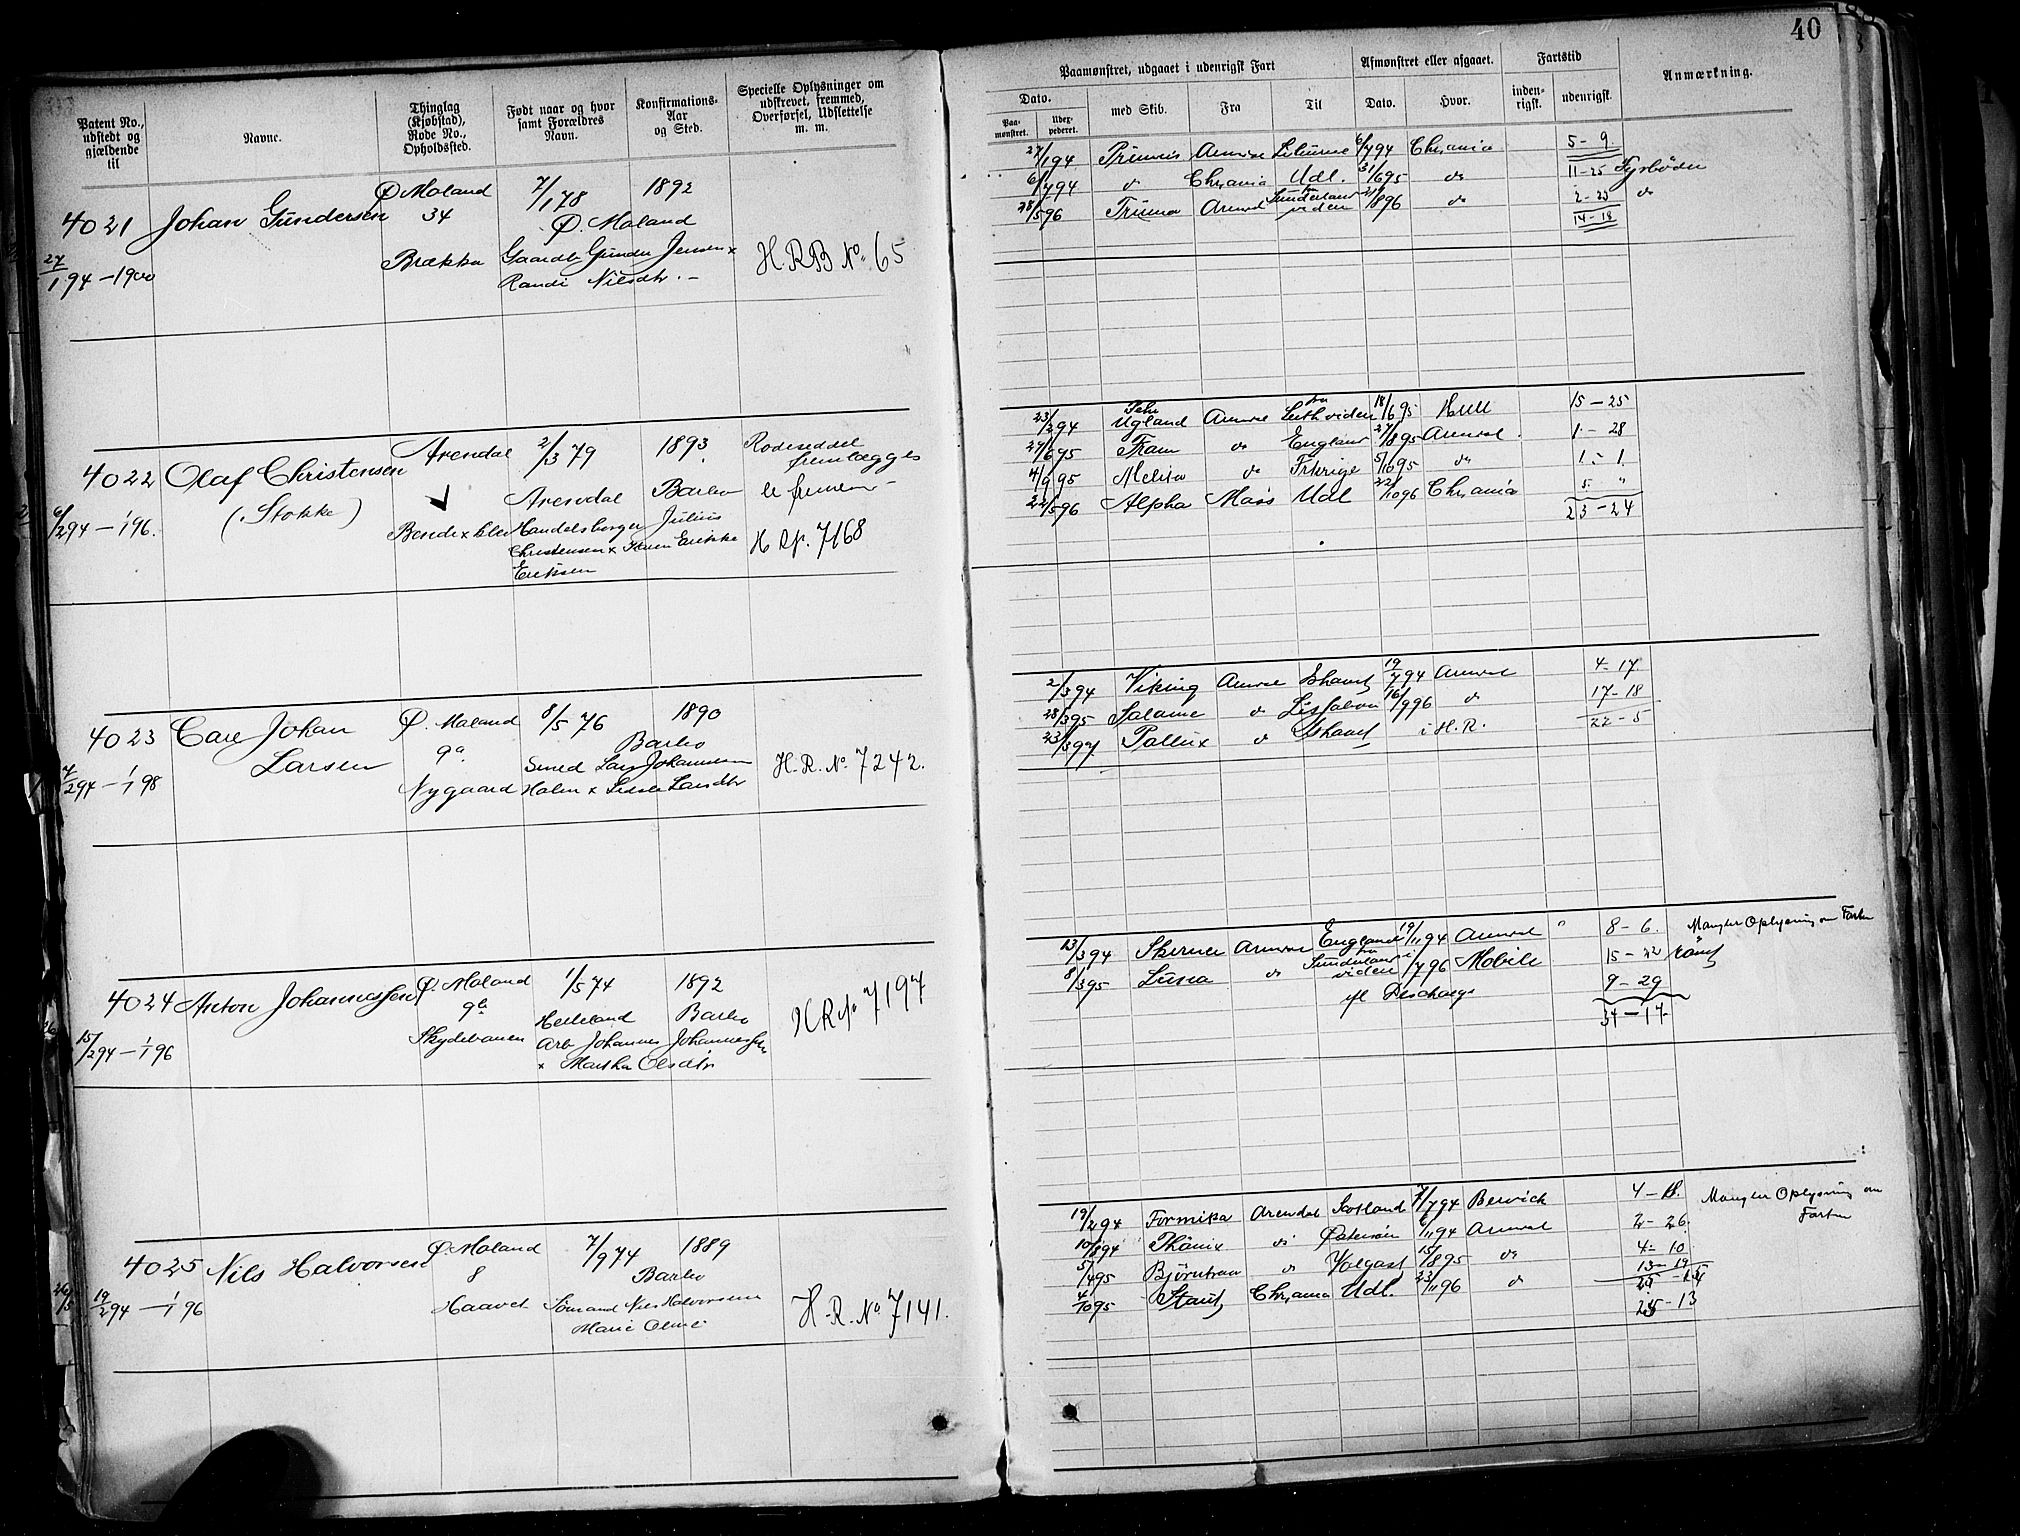 40
Patent No., udstedt og gjældende til
Navne.
Thinglag (Kjøbstad), Rode No., Opholdssted.
Født naar og hvor samt Forældres Navn.
Konfirmations-Aar og Sted.
Specielle Oplysninger om udskrevet, fremmed, Overførsel, Udslettelse m. m.
Paamønstret, udgaaet i udenrigsk Fart
Afmønstret eller afgaaet.
Fartstid
Anmærkning.
Dato.
Paa-mønstret.
Udex-pederet.
med Skib.
Fra
Til
Dato.
Hvor.
inden-rigsk.
udenrigsk.
4021 Johan Gundersen Ø. Moland 7/1 78 1892
34 Ø. Moland
27/1 94 - 1900 Brækka Gaardbr Gunder Jensen x H.R.B No. 65
Randi Nilsdtr. -
27/1 94 Primus 6/7 94 Chrania 5-9
6/7 94 do Chrania Udl. 31/6 95 do 11-25 Fyrbøder
28/5 96 Sunderland viden 21/8 96 do 2-25 do
14-18
4022 Olaf Christensen Arendal 2/3 79 1893 Rodeseddel fremlægges
(Stokke) Arendal Barbo
6/2 94 - 1/1 96. Handelsborger Julius
Christensen x Karen H Rf. 7168
Eriksen
23/2 94 Ugland fra Leith viden 18/6 95 Hull 15-25
27/6 95 Fram do England 27/8 95 Arendal 1-28
4/9 95 Melita do 5/10 95 do 1-1
22/5 96 Alpha Moss Udl 22/10 96 Chrania 5 "
23-24
4023 Carl Johan Larsen Ø. Moland 8/5 76 1890
9a Barbo
7/2 94 - 1/1 98 Nygaard Smed Lars Johannesen H.R. No. 7242.
Holm x
2/3 94 Viking Arendal Ishavet 19/7 94 Arendal 4-17
28/3 95 Salame do Lissabon 16/9 96 do 17-18
23/3 97 Pollux do Ishavet i H.R. 22-5
4024 Anton Johannessen Ø. Moland 1/5 74 1892
9b Barbo H R No 7197
15/2 94 - 1/1 96 Skydebanen Arb Johannes Johannessen
x Martha Olsdtr
13/3 94 Arendal England 19/11 94 Arendal " 8-6. Mangler Oplysning om Farten
8/3 95 do Sunderland viden 1/7 96 Mobile 15-22
efl Discharge 9-29
34-17
4025 Nils Halvorsen Ø. Moland 7/9 74 1889
8 Barbo
19/2 94 - 1/1 96 Haavet Sømand Nils Halvorsen H.R. No 7141.
Marie
19/2 94 Formika Arendal Scotland 7/7 94 Berwick 4-18. Mangler Oplysning om Farten
10/8 94 Phönix do 6/11 94 Arendal 2-26
5/4 95 do Volgast 15/8 95 do 4-10
4/10 95 Staut Chrania Udl. 23/11 96 do 13-19
25-13